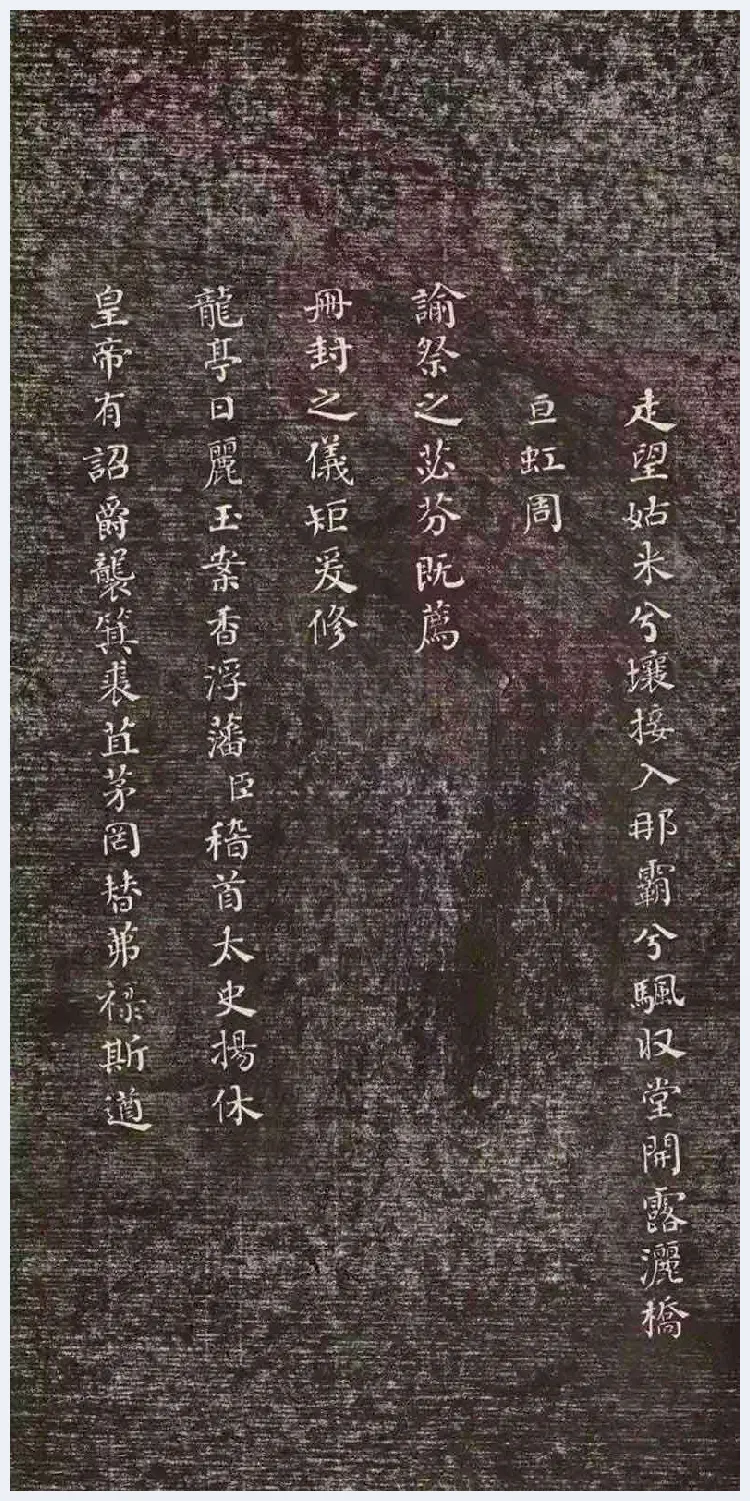 走望姑米兮壤接入那霸兮颿收堂開露灑橋
亘虹周
諭祭之苾芬既薦
冊封之儀矩爰修
龍亭日麗玉案香浮藩臣稽首太史揚休
皇帝有詔爵襲箕裘苴茅罔替茀祿斯遒